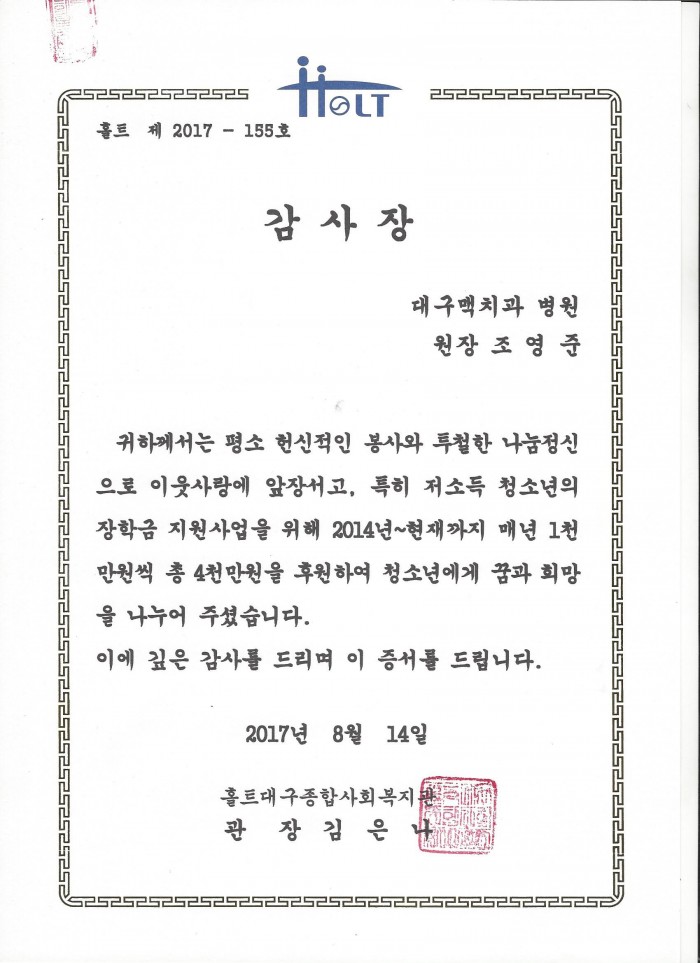 HOLT
홀트 제 2017 - 155호
감 사 장
대구맥치과 병원
원장 조 영 준
귀하께서는 평소 헌신적인 봉사와 투철한 나눔정신
으로 이웃사랑에 앞장서고, 특히 저소득 청소년의
장학금 지원사업을 위해 2014년~현재까지 매년 1천
만원씩 총 4천만원을 후원하여 청소년에게 꿈과 희망
을 나누어 주셨습니다.
이에 깊은 감사를 드리며 이 증서를 드립니다.
2017년 8월 14일
홀트대구종합사회복지관
관 장 김 은 나